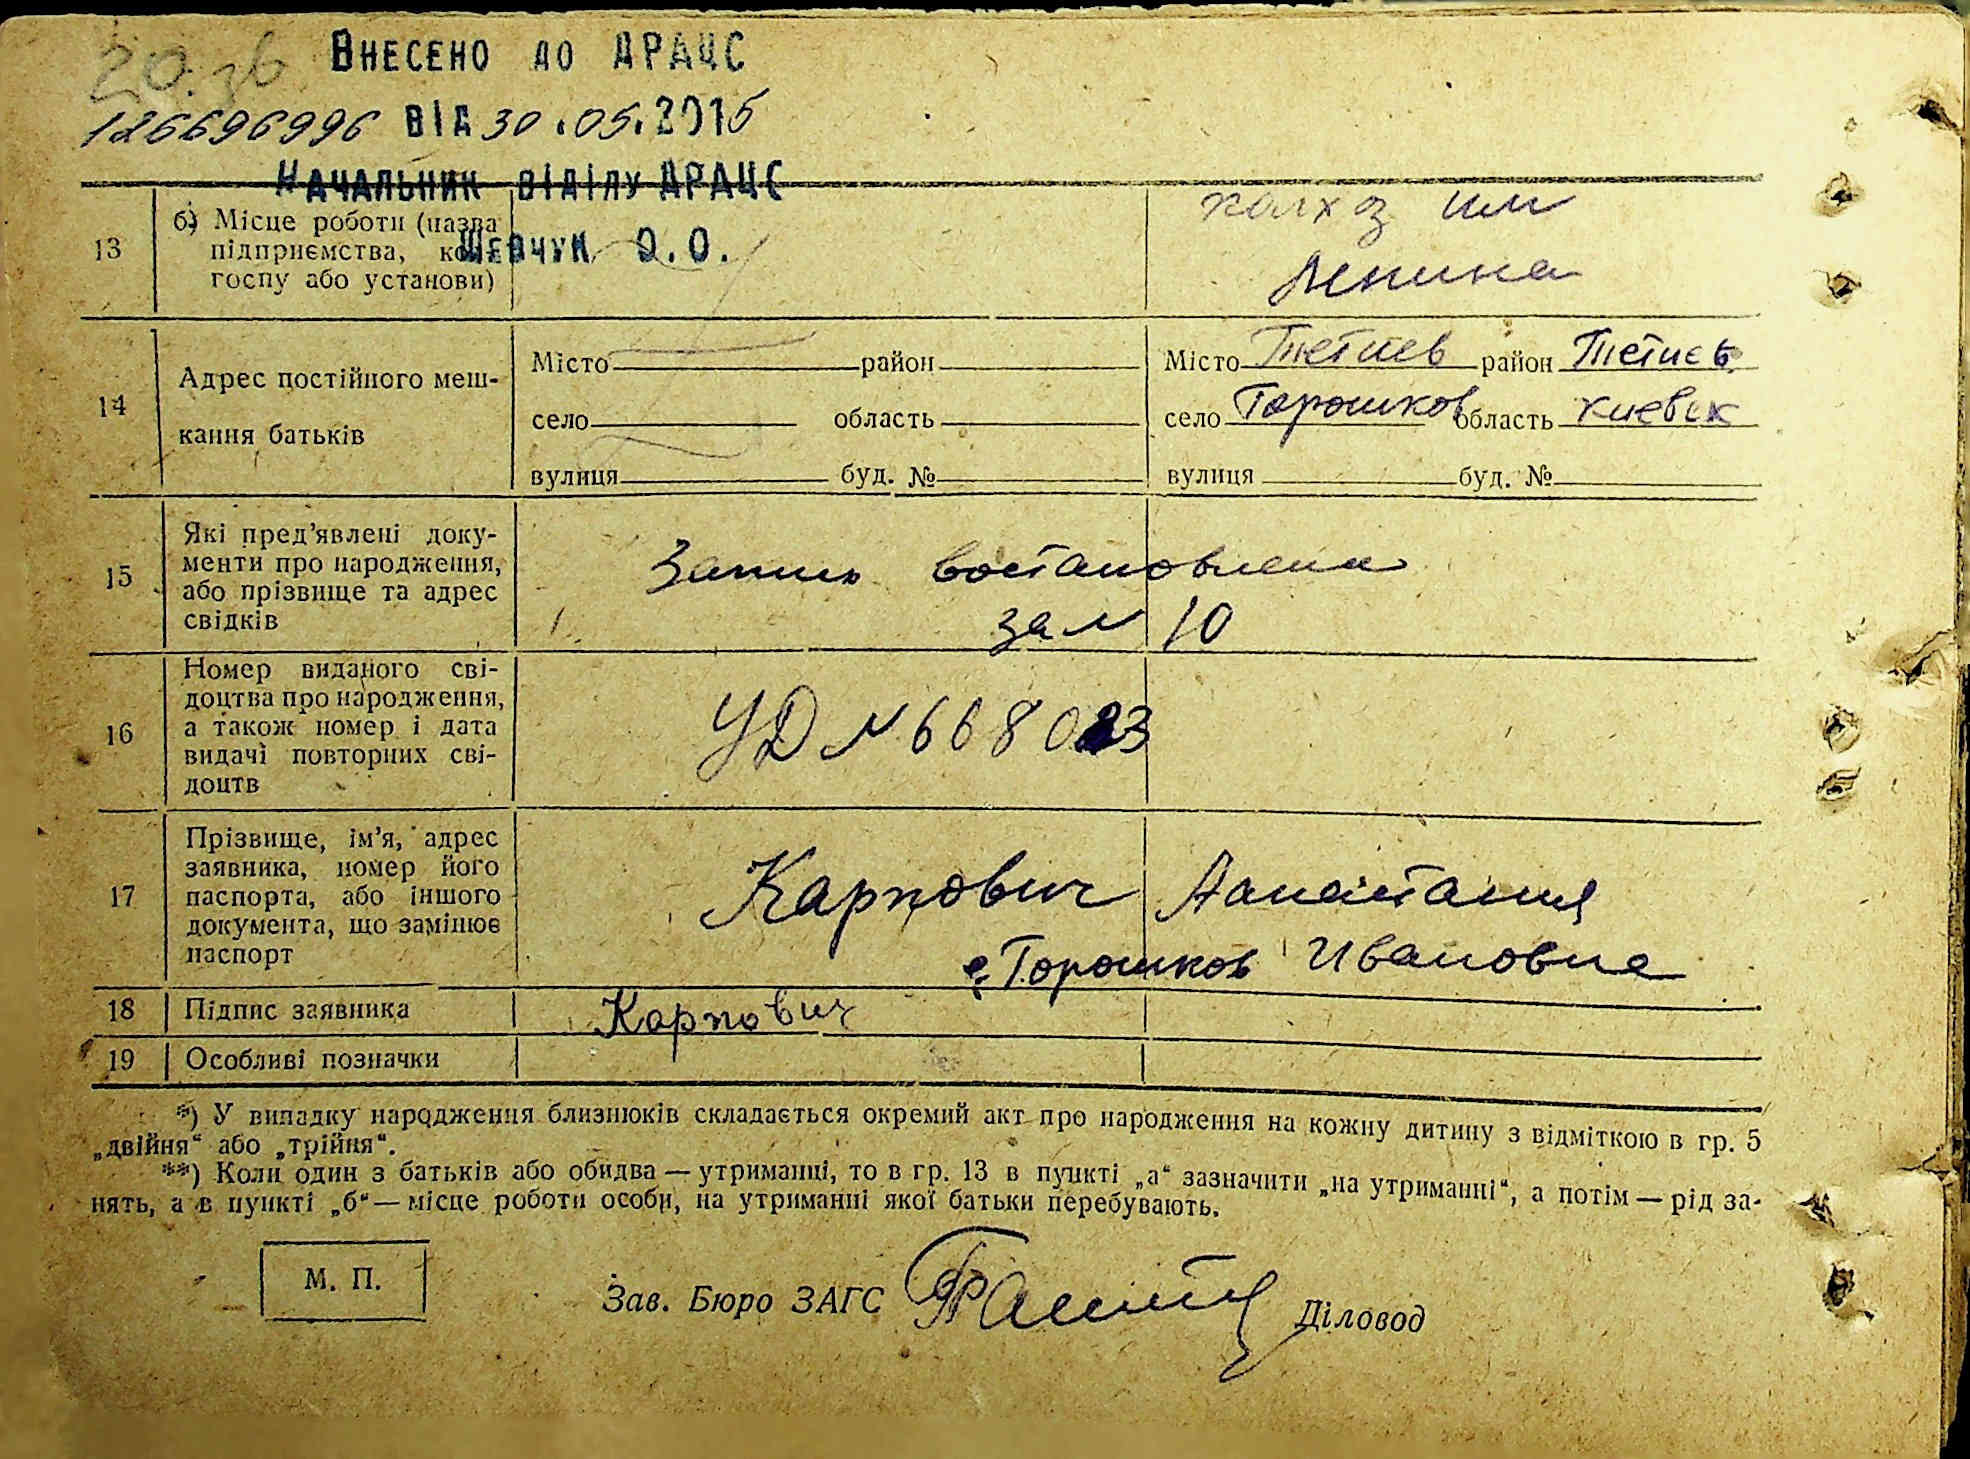 20. зв
Внесено до ДРАЦС
126696996 від 30.05.2015
Начальник відділу ДРАЦС
Шевчук О.О.
13
б) Місце роботи (назва
підприємства, кол-
госпу або установи)
колхоз им
Ленина
14
Адрес постійного меш-
кання батьків
Місто район
село область
вулиця буд. №
Місто Тетиев район Тетиев
село Горошков область Киевск
вулиця буд. №
15
Які пред’явлені доку-
менти про народження,
або прізвище та адрес
свідків
Запись востановлена
за N 10
16
Номер виданого сві-
доцтва про народження,
а також номер і дата
видачі повторних сві-
доцтв
УД N 668023
17
Прізвище, ім’я, адрес
заявника, номер його
паспорта, або іншого
документа, що замінює
паспорт
Карпович
с. Горошков Ивановна
18 Підпис заявника
Карпович
19 Особливі позначки
*) У випадку народження близнюків складається окремий акт про народження на кожну дитину з відміткою в гр. 5
„двійня“ або „трійня“.
**) Коли один з батьків або обидва — утриманці, то в гр. 13 в пункті „а“ зазначити „на утриманні“, а потім — рід за-
нять, а в пункті „б“ — місце роботи особи, на утриманні якої батьки перебувають.
М. П.
Зав. Бюро ЗАГС
Діловод